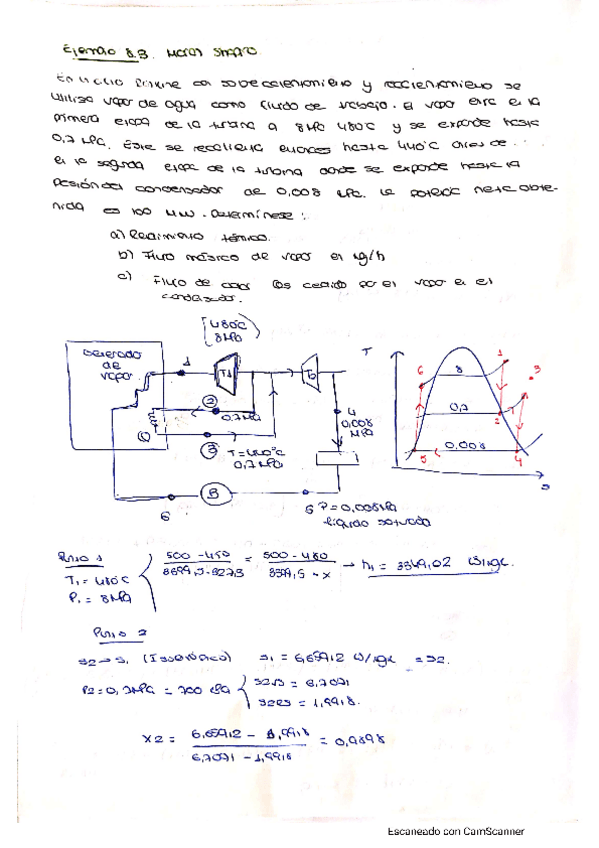 Ejemplo 8.3. MORAN SHAPIRO.
En un ciclo Rankine con sobrecalentamiento y recalentamiento se
utiliza vapor de agua como fluido de trabajo. El vapor entra en la
primera etapa de la turbina a 8 MPa 480°C y se expande hasta
0,7 MPa. Este se recalienta entonces hasta 440°C antes de
en la segunda etapa de la turbina donde se expande hasta la
presión del condensador de 0,008 MPa. La potencia neta obte-
nida es 100 MW. Determínese:
a) Rendimiento térmico.
b) Flujo másico de vapor en kg/h
c) Flujo de calor cedido por el vapor en el
condensador.
480°C
8MPa
Generador
de
vapor
1
T1
T2
T
2
0,7 MPa
3
T = 440°C
0,7 MPa
4
0,008
MPa
B
6
P = 0,008 MPa
líquido saturado
6
8
1
3
0,7
2
0,008
5
4
s
Punto 1
T1 = 480°C
P1 = 8 MPa
500 - 480
h1 = 3349,02
Punto 2
s2 → s1 (Isoentrópico) s1 = 6,65912 = s2.
P2 = 0,7 MPa = 700 kPa
6,7071
1,9918.
x2 = 6,65912 - 1,9918 / 6,7071 - 1,9918 = 0,9898
Escaneado con CamScanner